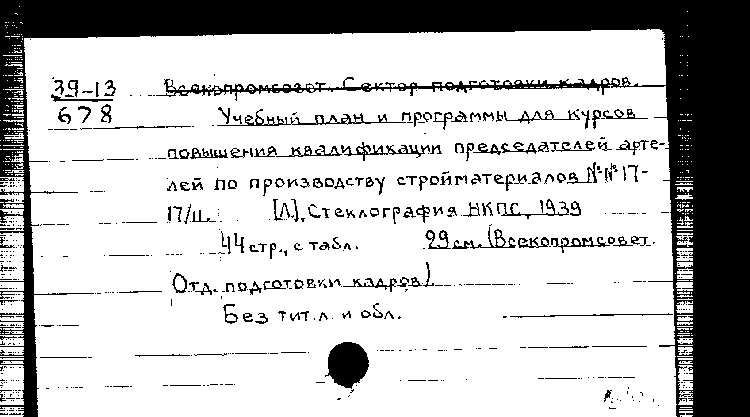 39-13 Всекопромсовет. Сектор подготовки кадров.
678 Учебный план и программы для курсов
повышения квалификации председателей арте-
лей по производству стройматериалов №№ 17-
17/II. [Л]. Стеклография НКПС, 1939
44 стр., с табл. 29 см. (Всекопромсовет.
Отд. подготовки кадров)
Без тит. л. и обл.